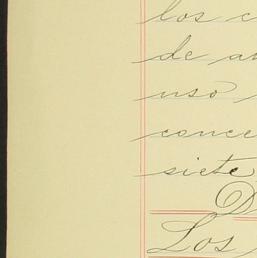 los c
de an
uso
conce
siete
D
Los